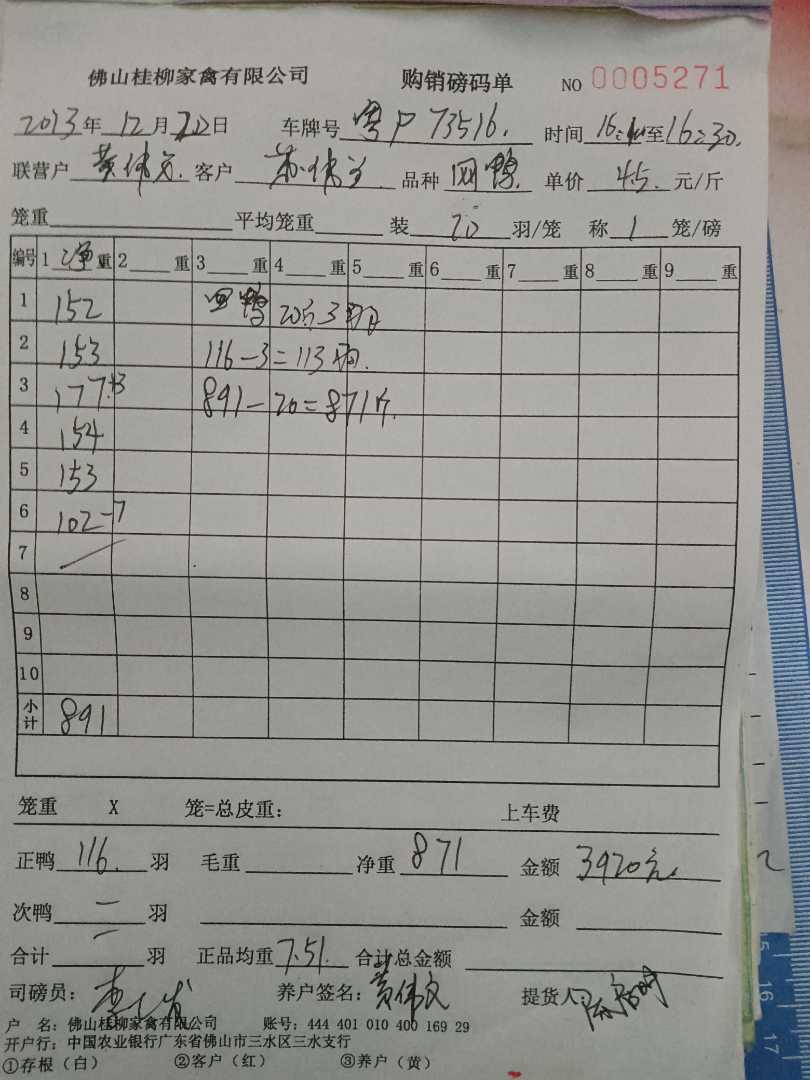 佛山桂柳家禽有限公司 购销磅码单 NO 0005271
2013年12月22日 车牌号 粤P73516. 时间 16: 至16:30.
联营户 黄伟文. 客户 苏伟兰 品种 网鸭. 单价 4.5. 元/斤
笼重 平均笼重 装 20 羽/笼 称 1 笼/磅
编号 1 净 重 2 重 3 重 4 重 5 重 6 重 7 重 8 重 9 重
1 152 回鸭 20斤3羽
2 153 116-3=113羽.
3 177 891-20=871斤.
4 154
5 153
6 102-7
7
8
9
10
小计 891
笼重 X 笼=总皮重： 上车费
正鸭 116. 羽 毛重 净重 871 金额 3920元.
次鸭 — 羽 金额
合计 — 羽 正品均重 7.51. 合计总金额
司磅员： 养户签名：黄伟文 提货人：
户 名：佛山桂柳家禽有限公司 账号：444 401 010 400 169 29
开户行：中国农业银行广东省佛山市三水区三水支行
①存根（白） ②客户（红） ③养户（黄）
15
16
17